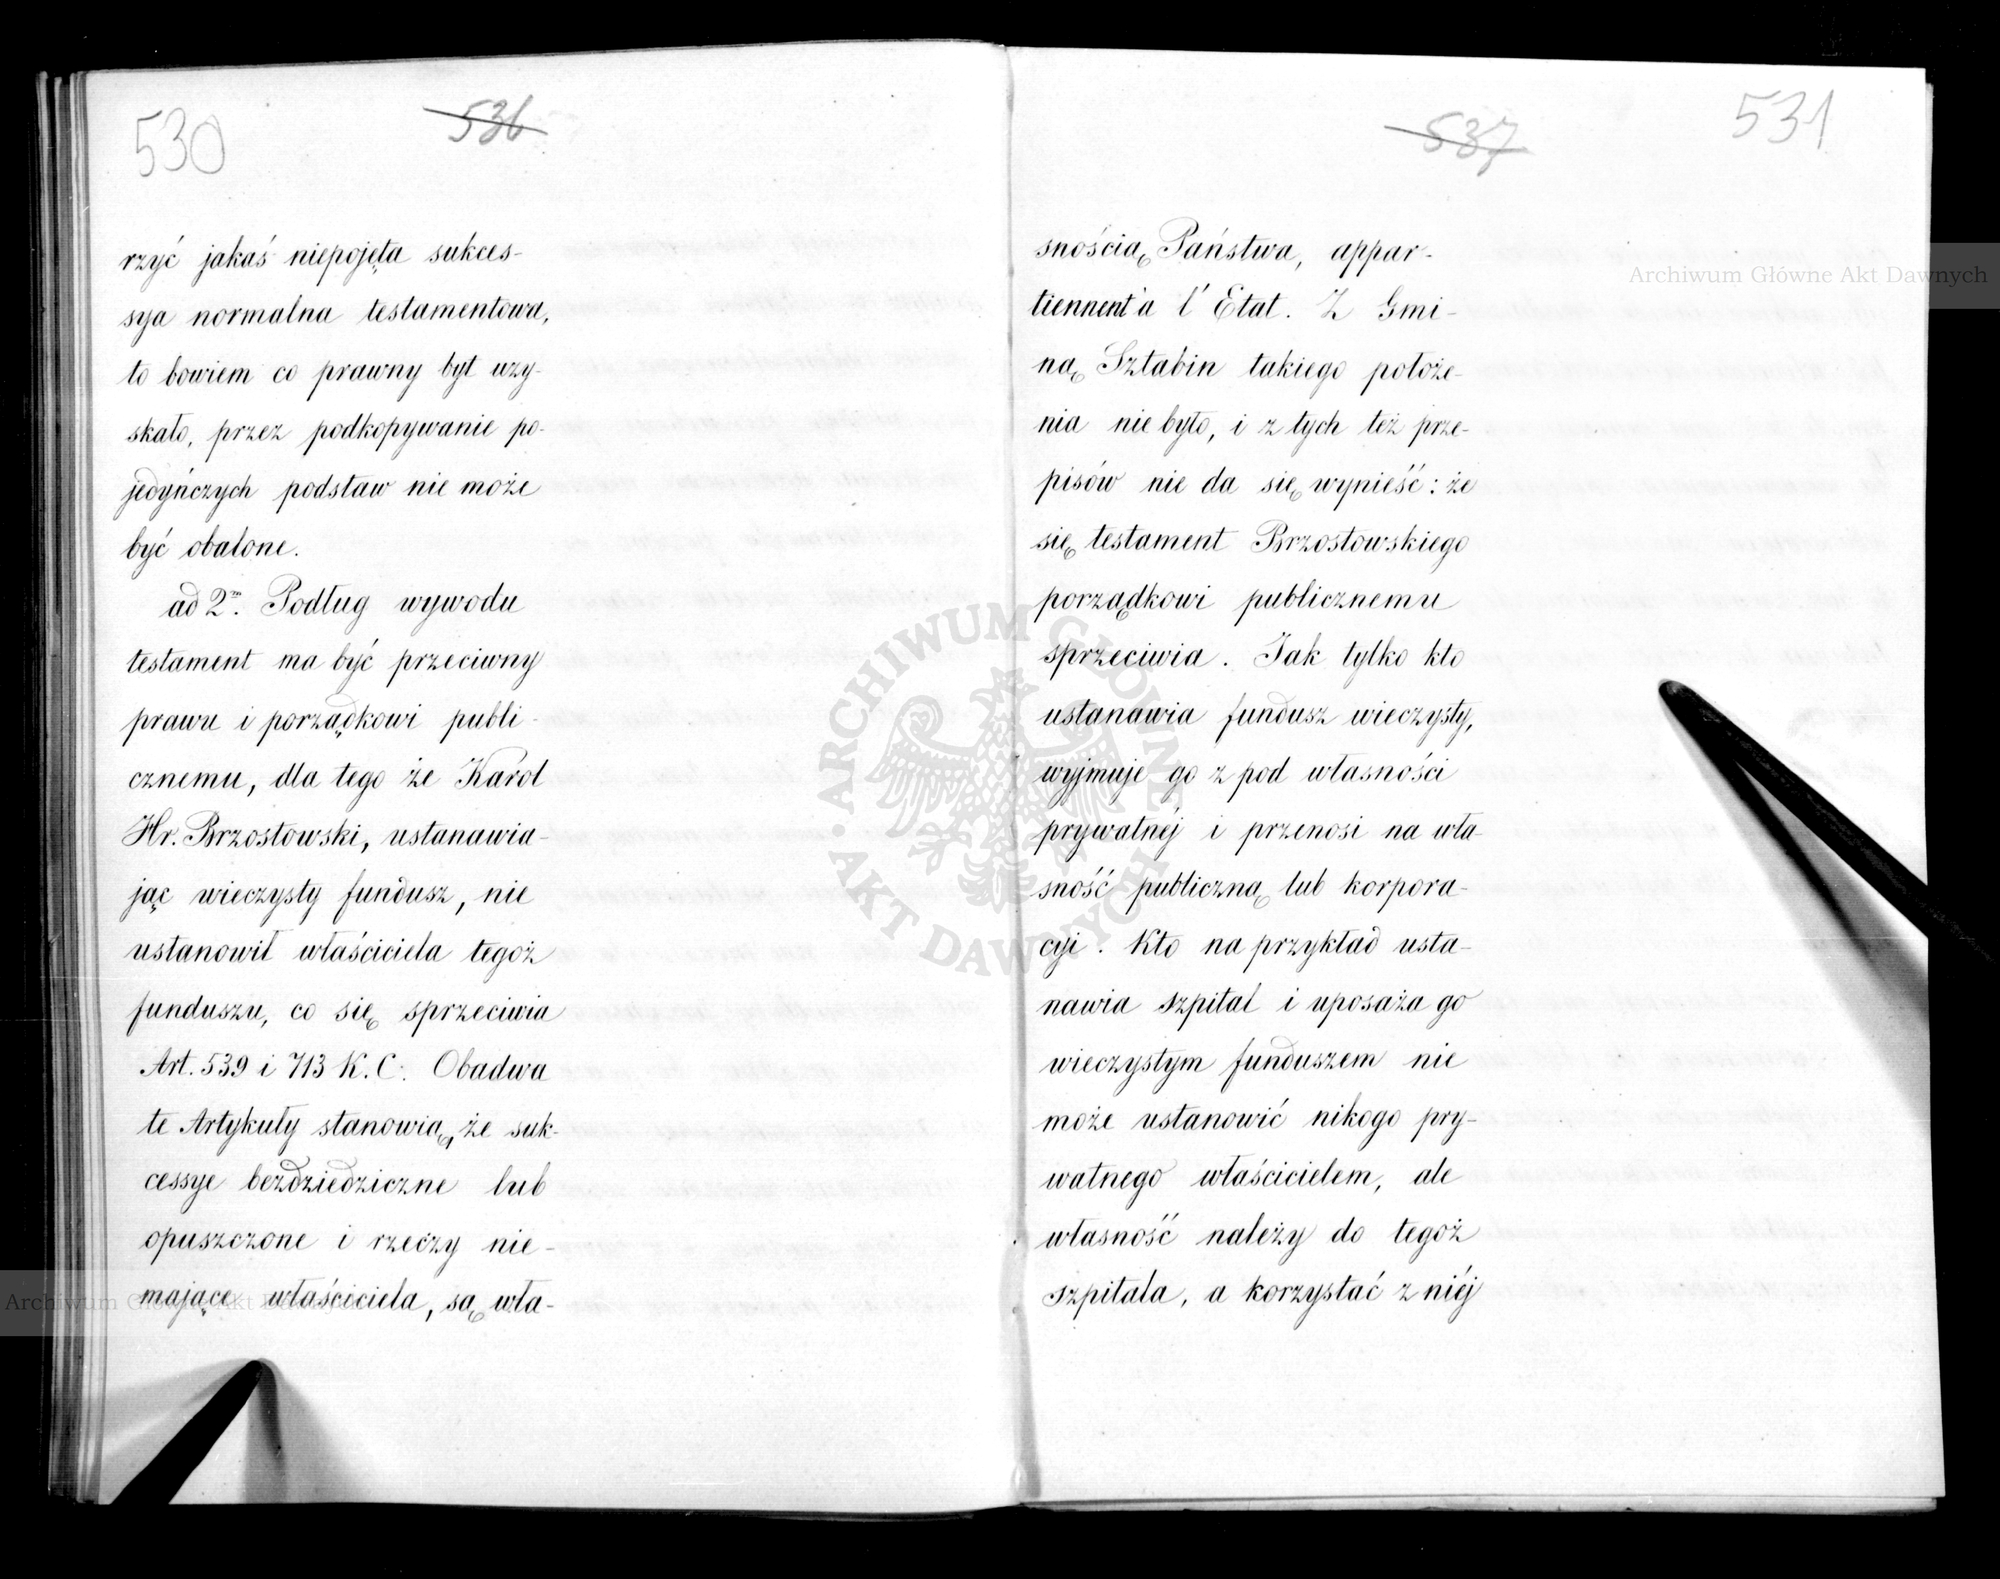 530
536
rzyć jakaś niepojęta sukces-
sya normalna testamentowa,
to bowiem co prawny byt uzy-
skało, przez podkopywanie po-
jedyńczych podstaw nie może
być obalone.
ad 2m. Podług wywodu
testament ma być przeciwny
prawu i porządkowi publi-
cznemu, dla tego że Karol
Hr. Brzostowski, ustanawia-
jąc wieczysty fundusz, nie
ustanowił właściciela tegoż
funduszu, co się sprzeciwia
Art. 539 i 713 K. C. Obadwa
te Artykuły stanowią, że suk-
cessye bezdziedziczne lub
opuszczone i rzeczy nie-
mające właściciela, są wła-
537
531
snością Państwa, appar-
tiennent à l'Etat. Z Gmi-
ną Sztabin takiego położe-
nia nie było, i z tych też prze-
pisów nie da się wynieść: że
się testament Brzostowskiego
porządkowi publicznemu
sprzeciwia. Jak tylko kto
ustanawia fundusz wieczysty,
wyjmuje go z pod własności
prywatnéj i przenosi na wła-
sność publiczną lub korpora-
cyi. Kto na przykład usta-
nawia szpital i uposaża go
wieczystym funduszem nie
może ustanowić nikogo pry-
watnego właścicielem, ale
własność należy do tegoż
szpitala, a korzystać z niéj
Archiwum Główne Akt Dawnych
Archiwum Główne Akt Dawnych
ARCHIWUM GŁÓWNE AKT DAWNYCH